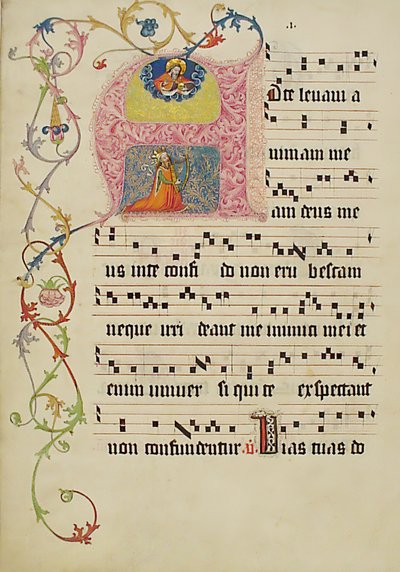 .1.
Ad te levavi a
nimam me
am deus me
us in te confi do non eru bescam
neque irri deant me inimici mei et
enim univer si qui te exspectant
non confundentur. v̄. Vias tuas do